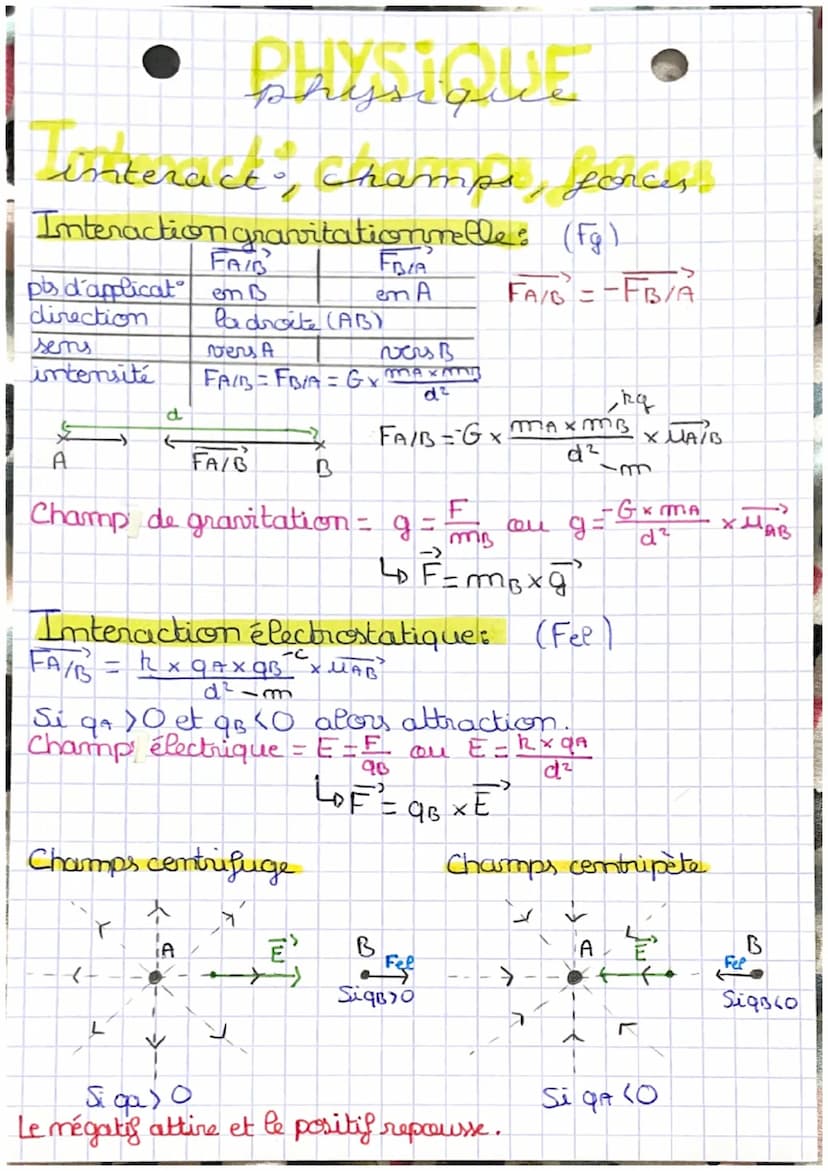 PHYSIQUE
physique
Interact°, champs, forces
interact°, champs, forces
Interaction gravitationnelle : (Fg)
F⃗A/B F⃗B/A
pts d'applicat° en B en A
F⃗A/B = -F⃗B/A
direction la droite (AB)
sens vers A vers B
intensité FA/B = FB/A = G x mA x mB / d²
d
A F⃗A/B B
FA/B = -G x mA x mB / d² x μ⃗A/B
kg
m
Champ de gravitation = g = F / mB ou g = -G x mA / d² x μ⃗AB
↳ F⃗ = mB x g⃗
Interaction électrostatique : (Fel)
F⃗A/B = k x qA x qB - C / d² - m x μ⃗AB
Si qA > 0 et qB < 0 alors attraction.
Champs électrique = E = F / qB ou E = k x qA / d²
↳ F⃗ = qB x E⃗
Champs centrifuge Champs centripète
A E⃗ B Fel A E⃗ B Fel
Si qB > 0 Si qB < 0
Si qa > 0 Si qA < 0
Le négatif attire et le positif repousse.